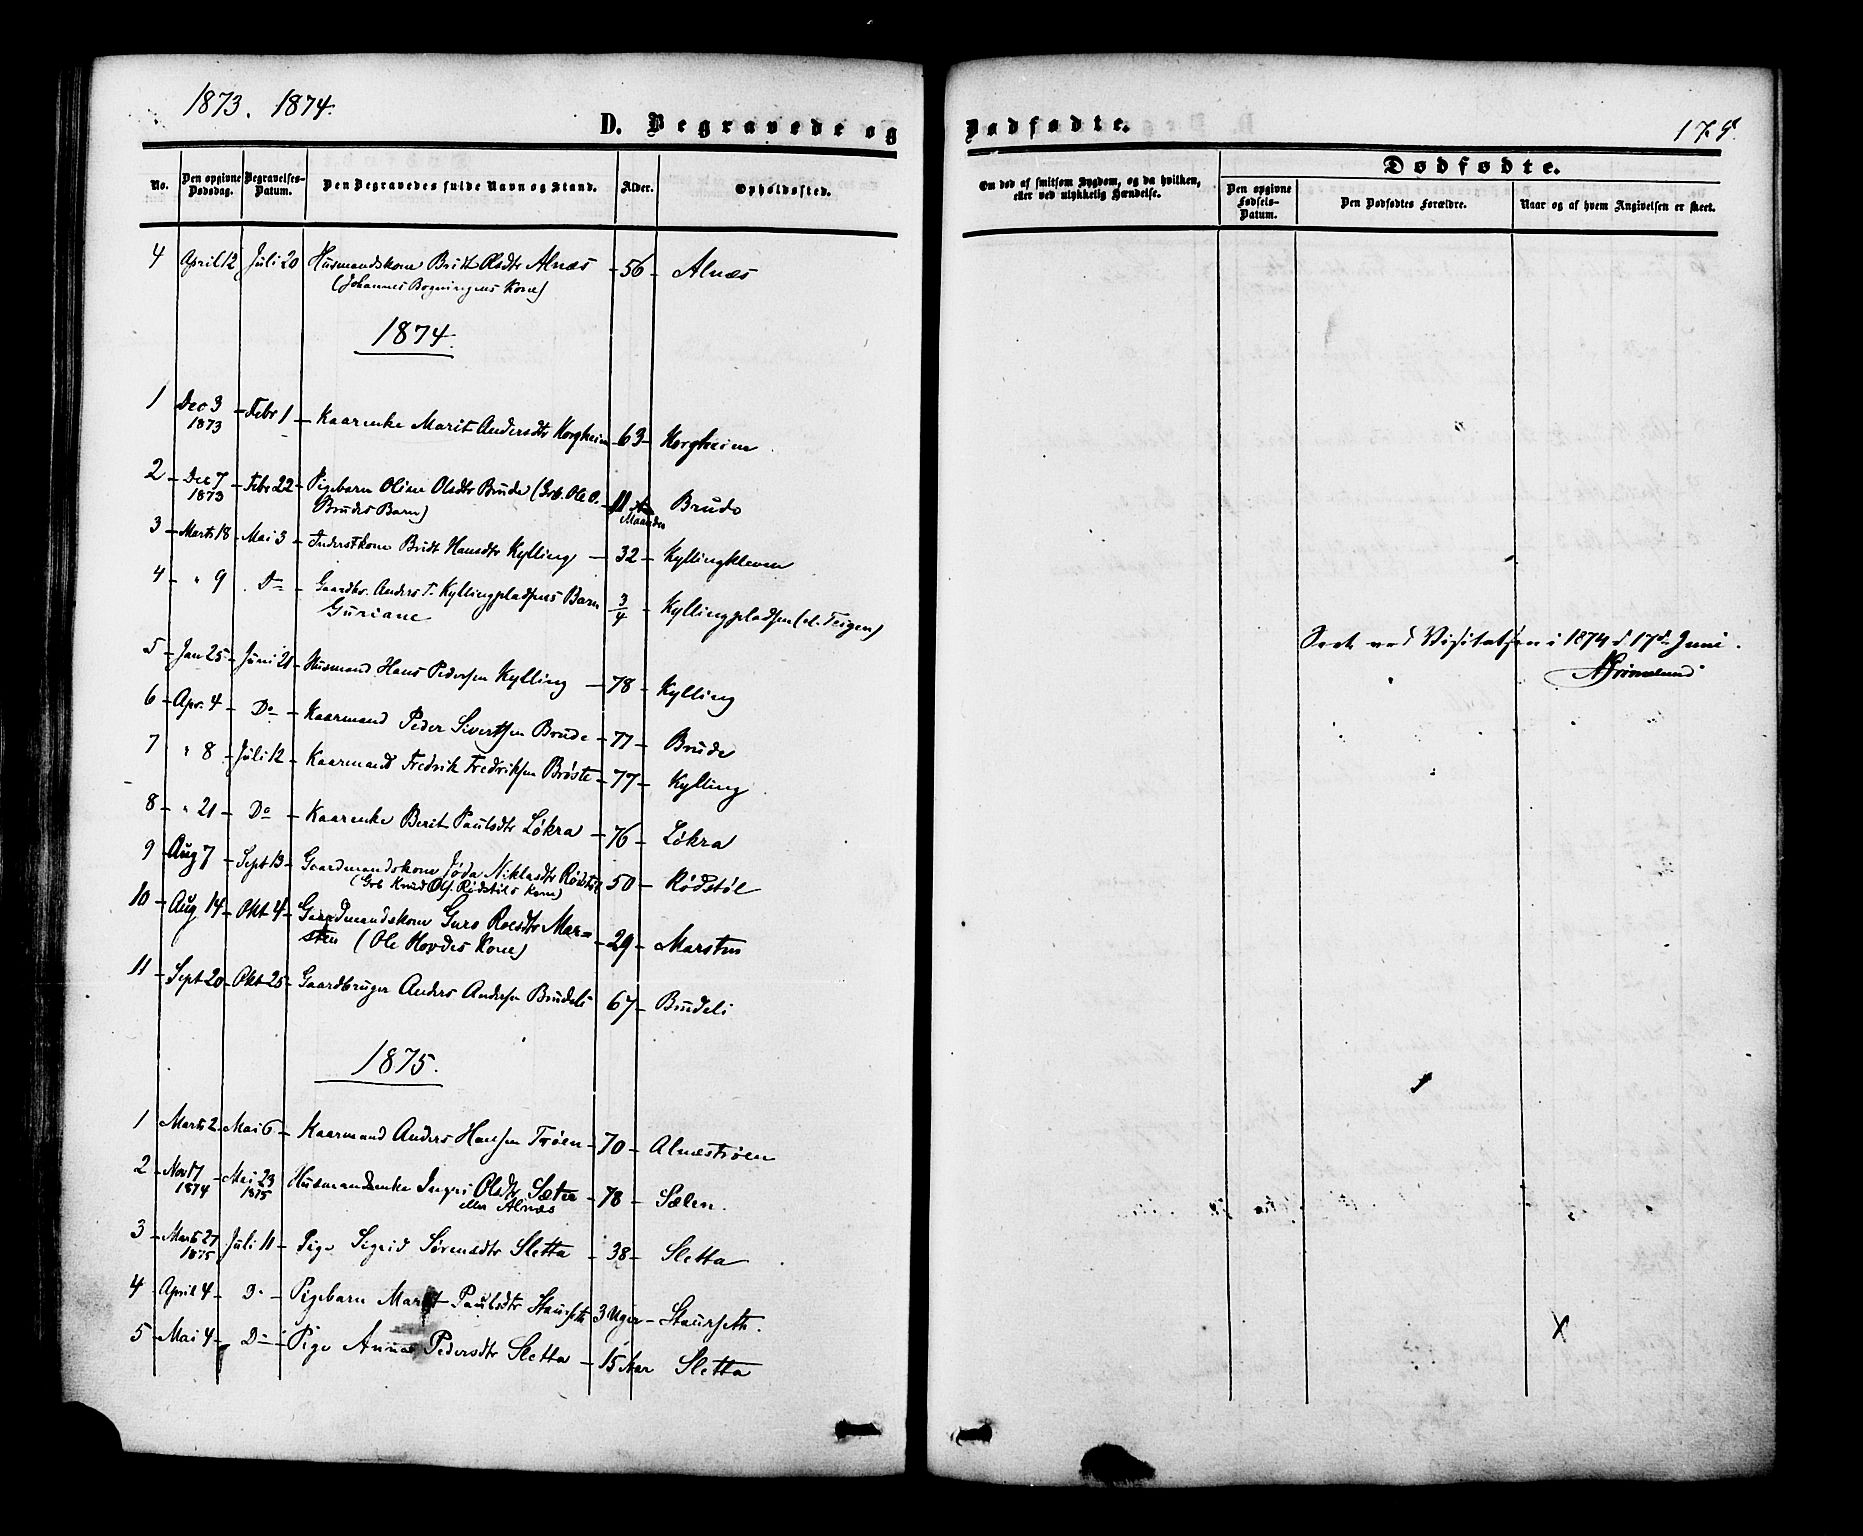 1873. 1874.
D. Begravede og Dødfødte.
175.
No.
Den opgivne Dødsdag.
Begravelses-Datum.
Den Begravedes fulde Navn og Stand.
Alder.
Opholdssted.
Om død af smitsom Sygdom, og da hvilken, eller ved ulykkelig Hændelse.
Dødfødte.
Den opgivne Fødsels-Datum.
Den Dødfødtes Forældre.
Naar og af hvem Angivelsen er skeet.
4 April 12 Juli 20 Husmandskone Britt Olsdtr Alnæs 56 Alnæs
(Johannes Bogningens Kone)
1874.
1 Dec 3 1873 Febr 1 Kaarenke Marit Andersdtr Horgheim 63 Horgheim
2 Dec 7 1873 Febr 22 Pigebarn Oline Olsdtr Brude (Grb. Ole O. 11 Maaneder Brude
Brudes Barn)
3 Marts 18 Mai 3 Inderstkone Britt Hansdtr Kylling 32 Kyllingkleven
4 " 9 Do Gaardbr. Anders T. Kyllingpladsens Barn 3/4 Kyllingpladsen (el. Teigen)
Guriane
5 Jan 25 Juni 21 Husmand Hans Pedersen Kylling 78 Kylling
6 Apr. 4 Do Kaarmand Peder Sivertsen Brude 77 Brude
7 " 8 Juli 12 Kaarmand Fredrik Fredriksen Brøste 77 Kylling
8 " 21 Do Kaarenke Berit Paulsdtr Løkra 76 Løkra
9 Aug 7 Sept 13 Gaardmandskone Jøda Niklasdtr Rødstøl 50 Rødstøl
(Grb Knud Ols. Rødstøls Kone)
10 Aug 14 Okt 4 Gaardmandskone Guro Roesdtr Mar=
sten (Ole Hovdes Kone) 29 Marsten
11 Sept 20 Okt 25 Gaardbruger Anders Andersen Brudeli 67 Brudeli
1875.
1 Marts 2 Mai 6 Kaarmand Anders Hansen Trøen 70 Alnæstrøen
2 Nov 17 1874 Mai 23 1875 Husmandsenke Ingri Olsdtr Sætre 78 Sælen.
eller Alnæs
3 Marts 27 1875 Juli 11 Pige Sigrid Sørensdtr Sletta 38 Sletta
4 April 4 Do Pigebarn Marit Paulsdtr Stavseth 3 Uger Stavseth.
5 Mai 4 Do Pige Anna Pedersdtr Sletta 15 Aar Sletta
Seet ved Visitatsen i 1874 d 17de Juni.
AGrimelund
X